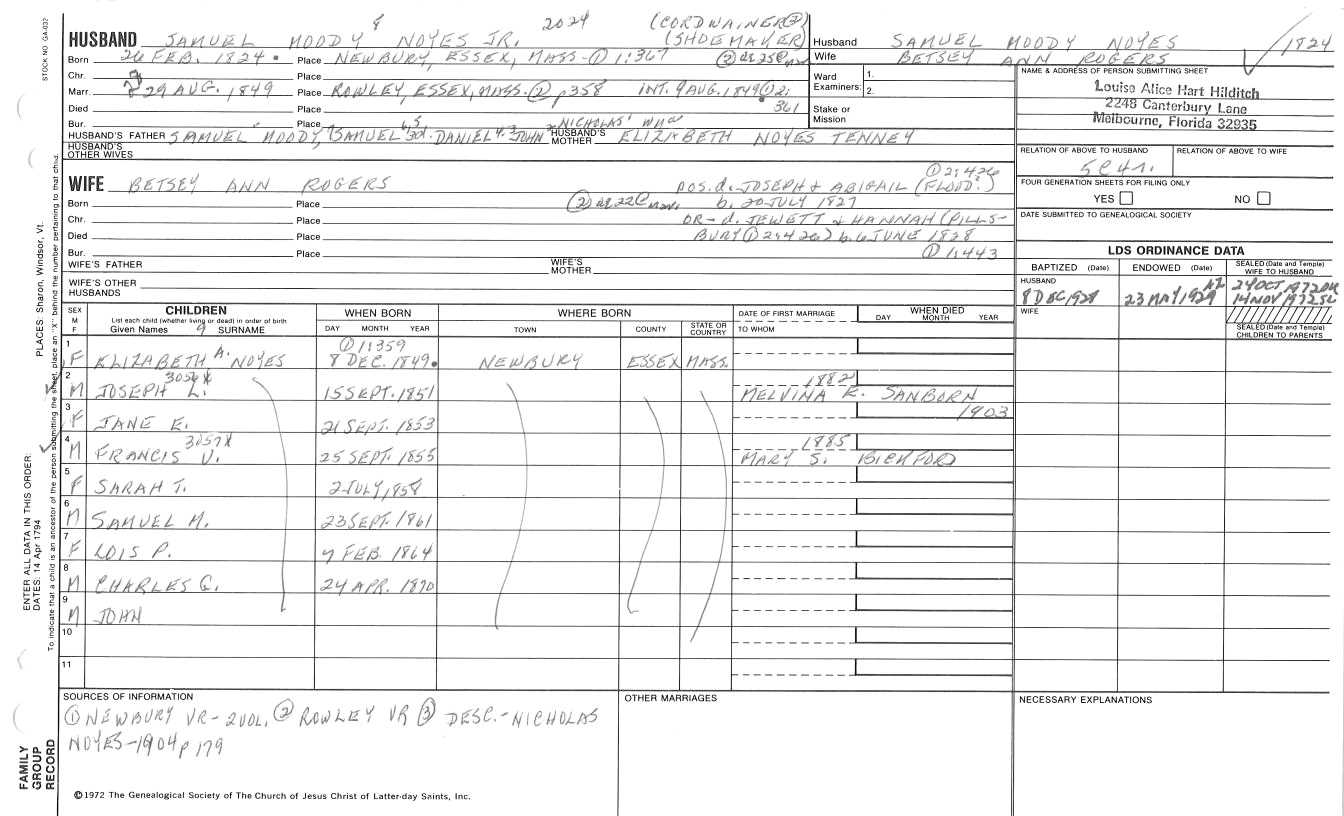 STOCK NO. GA-032
8 2024 (CORDWAINER②)
HUSBAND SAMUEL MOODY NOYES JR. (SHOEMAKER)
Born 26 FEB. 1824 Place NEWBURY, ESSEX, MASS-① 1:367 ② ae 25
Chr. Place
Marr. 29 AUG. 1849 Place ROWLEY, ESSEX, MASS. ② p358 INT. 9 AUG. 1849 ① 2:361
Died Place
Bur. Place NICHOLAS'
HUSBAND'S FATHER SAMUEL MOODY, SAMUEL DANIEL JOHN HUSBAND'S MOTHER ELIZABETH NOYES TENNEY
HUSBAND'S OTHER WIVES
WIFE BETSEY ANN ROGERS POS. d. JOSEPH & ABIGAIL (FLOOD?) ① 2:426
Born Place ② ae 22 b. 20 JULY 1827
Chr. Place OR - d. JEWETT & HANNAH (PILLS-
Died Place BURY ① 2:426) b. 6 JUNE 1828
Bur. Place ① 1:443
WIFE'S FATHER WIFE'S MOTHER
WIFE'S OTHER HUSBANDS
Husband SAMUEL MOODY NOYES 1824
Wife BETSEY ANN ROGERS
Ward Examiners: 1. 2.
Stake or Mission
NAME & ADDRESS OF PERSON SUBMITTING SHEET
Louise Alice Hart Hilditch
2248 Canterbury Lane
Melbourne, Florida 32935
RELATION OF ABOVE TO HUSBAND RELATION OF ABOVE TO WIFE
5C4r.
FOUR GENERATION SHEETS FOR FILING ONLY
YES NO
DATE SUBMITTED TO GENEALOGICAL SOCIETY
LDS ORDINANCE DATA
BAPTIZED (Date) ENDOWED (Date) SEALED (Date and Temple) WIFE TO HUSBAND
HUSBAND
8 DEC 1928 23 MAY 1929 AZ 24 OCT 1972
14 NOV 1972 SL
WIFE
SEALED (Date and Temple) CHILDREN TO PARENTS
SEX M F CHILDREN WHEN BORN WHERE BORN DATE OF FIRST MARRIAGE WHEN DIED
List each child (whether living or dead) in order of birth
Given Names 9 SURNAME DAY MONTH YEAR TOWN COUNTY STATE OR COUNTRY TO WHOM DAY MONTH YEAR
① 1:359
1 F ELIZABETH A. NOYES 8 DEC. 1849 NEWBURY ESSEX MASS.
3056X 1882
2 M JOSEPH L. 15 SEPT. 1851 MELVINA E. SANBORN
3 F JANE E. 21 SEPT. 1853 1903
3057X 1885
4 M FRANCIS V. 25 SEPT. 1855 MARY S. BICKFORD
5 F SARAH T. 2 JULY, 1858
6 M SAMUEL M. 23 SEPT. 1861
7 F LOIS P. 7 FEB. 1864
8 M CHARLES G. 24 APR. 1870
9 M JOHN
10
11
SOURCES OF INFORMATION OTHER MARRIAGES NECESSARY EXPLANATIONS
① NEWBURY VR-2VOL. ② ROWLEY VR ③ DESC.-NICHOLAS
NOYES-1904 p 179
©1972 The Genealogical Society of The Church of Jesus Christ of Latter-day Saints, Inc.
PLACES: Sharon, Windsor, Vt.
To indicate that a child is an ancestor of the person submitting the sheet, place an "X" behind the number pertaining to that child.
ENTER ALL DATA IN THIS ORDER:
DATES: 14 Apr 1794
FAMILY GROUP RECORD